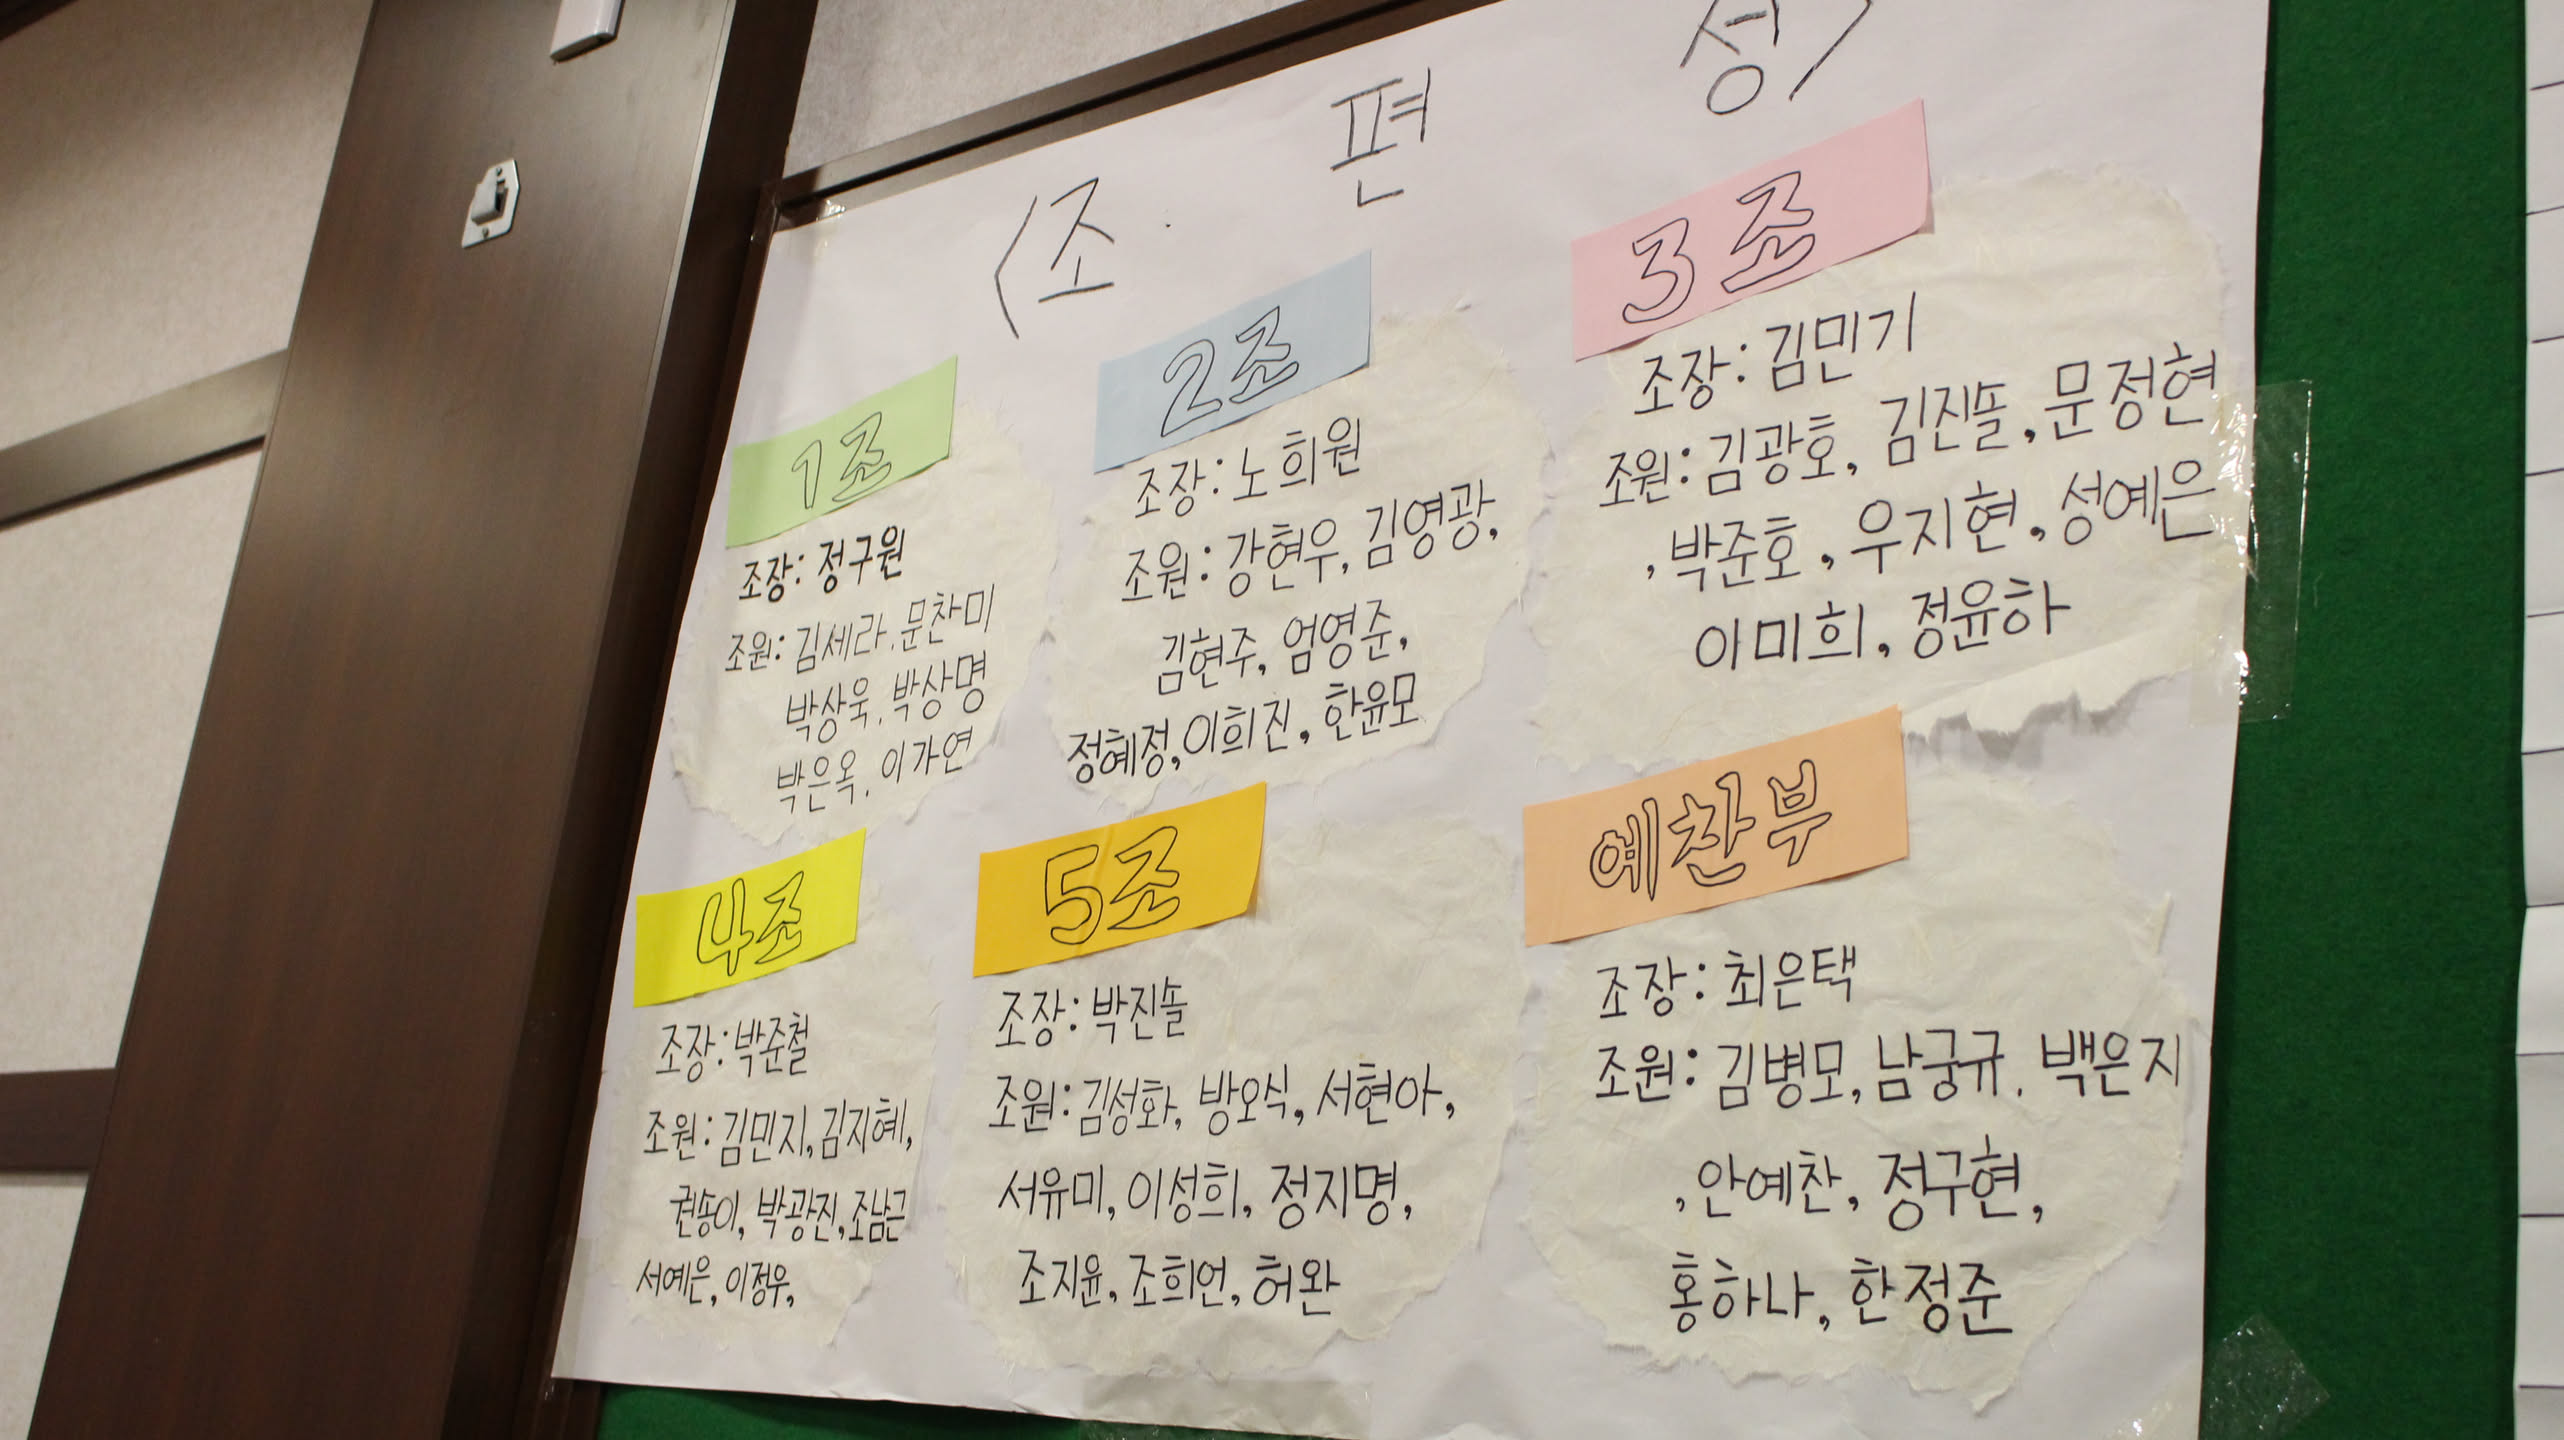 <조 편 성>
1조
조장: 정구원
조원: 김세라, 문찬미
박상욱, 박상명
박은옥, 이가연
2조
조장: 노희원
조원: 강현우, 김영광,
김현주, 엄영준,
정혜정, 이희진, 한윤모
3조
조장: 김민기
조원: 김광호, 김진솔, 문정현
, 박준호, 우지현, 성예은
이미희, 정윤하
4조
조장: 박준철
조원: 김민지, 김지혜,
권송이, 박광진, 조남근
서예은, 이정우,
5조
조장: 박진솔
조원: 김성화, 방오식, 서현아,
서유미, 이성희, 정지명,
조지윤, 조희언, 허완
예찬부
조장: 최은택
조원: 김병모, 남궁규, 백은지
, 안예찬, 정구현,
홍하나, 한정준